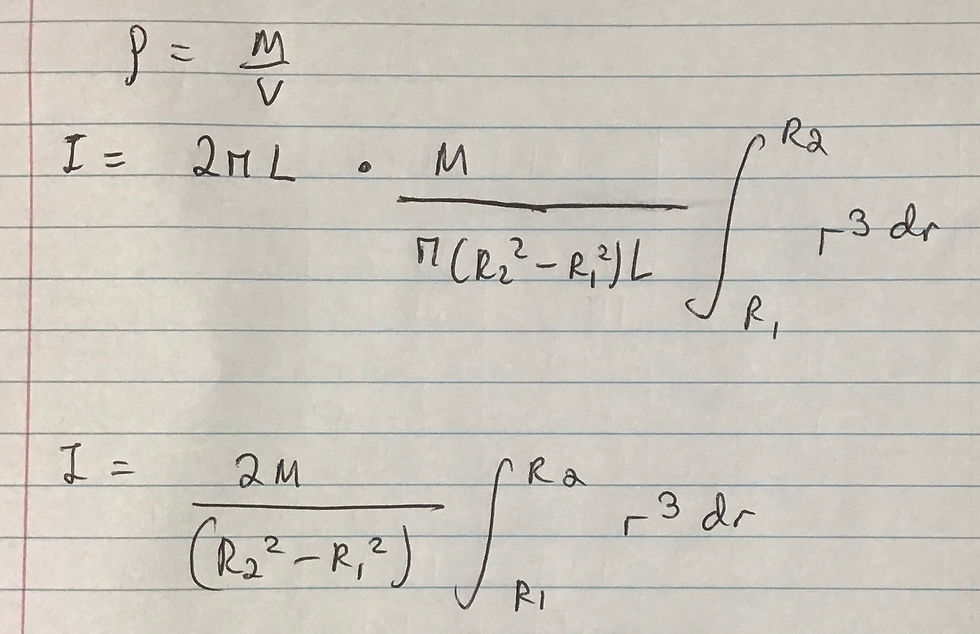 ρ = M/V
I = 2πL • M/(π(R₂² − R₁²)L) ∫_{R₁}^{R₂} r³ dr
I = 2M/(R₂² − R₁²) ∫_{R₁}^{R₂} r³ dr